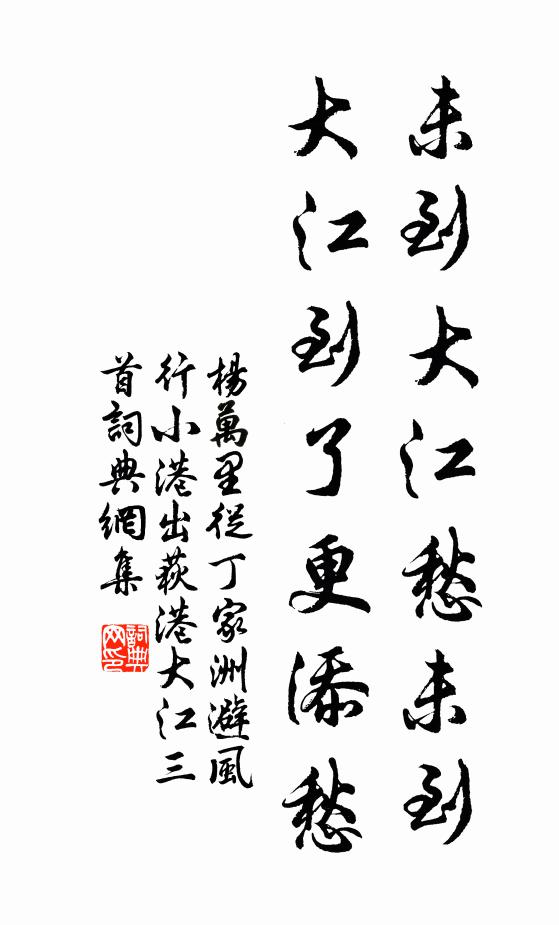 未到大江愁未到
大江到了更添愁
楊萬里從丁家洲避風
行小港出荻港大江三
首詞典網集
詞典
网印